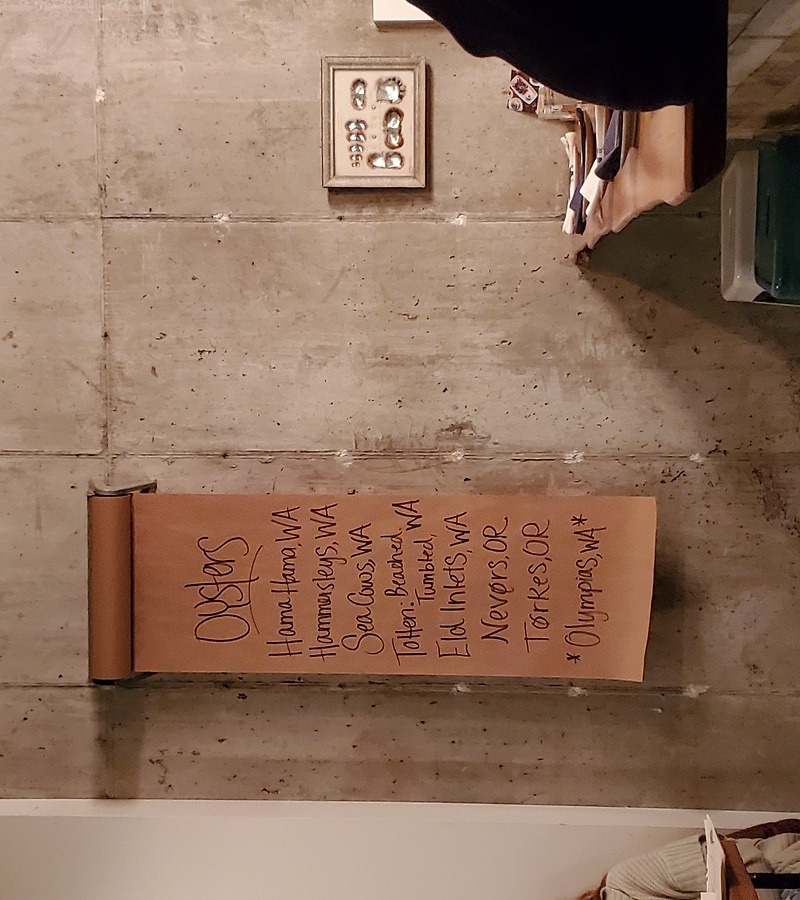 Oysters
Hama Hama, WA
Hammersleys, WA
Sea Cows, WA
Totten: Beached,
Tumbled, WA
Eld Inlets, WA
Nevørs, OR
Tørkes, OR
*Olympias, WA*